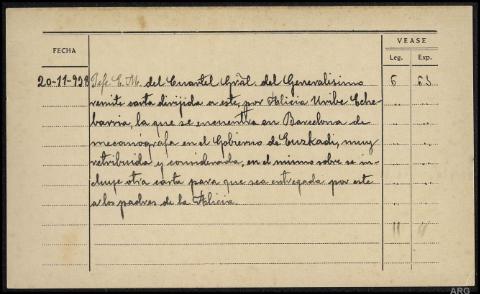 VEASE
FECHA
Leg. Exp.
20-11-938 Jefe E. M. del Cuartel Gral. del Generalisimo 6 63
remite carta dirijida a este, por Alicia Uribe Eche
barria, la que se encuentra en Barcelona de
mecanógrafa en el Gobierno de Euzkadi, muy
retribuida y considerada, en el mismo sobre se in-
cluye otra carta para que sea entregada por este
a los padres de la Alicia.
ARG